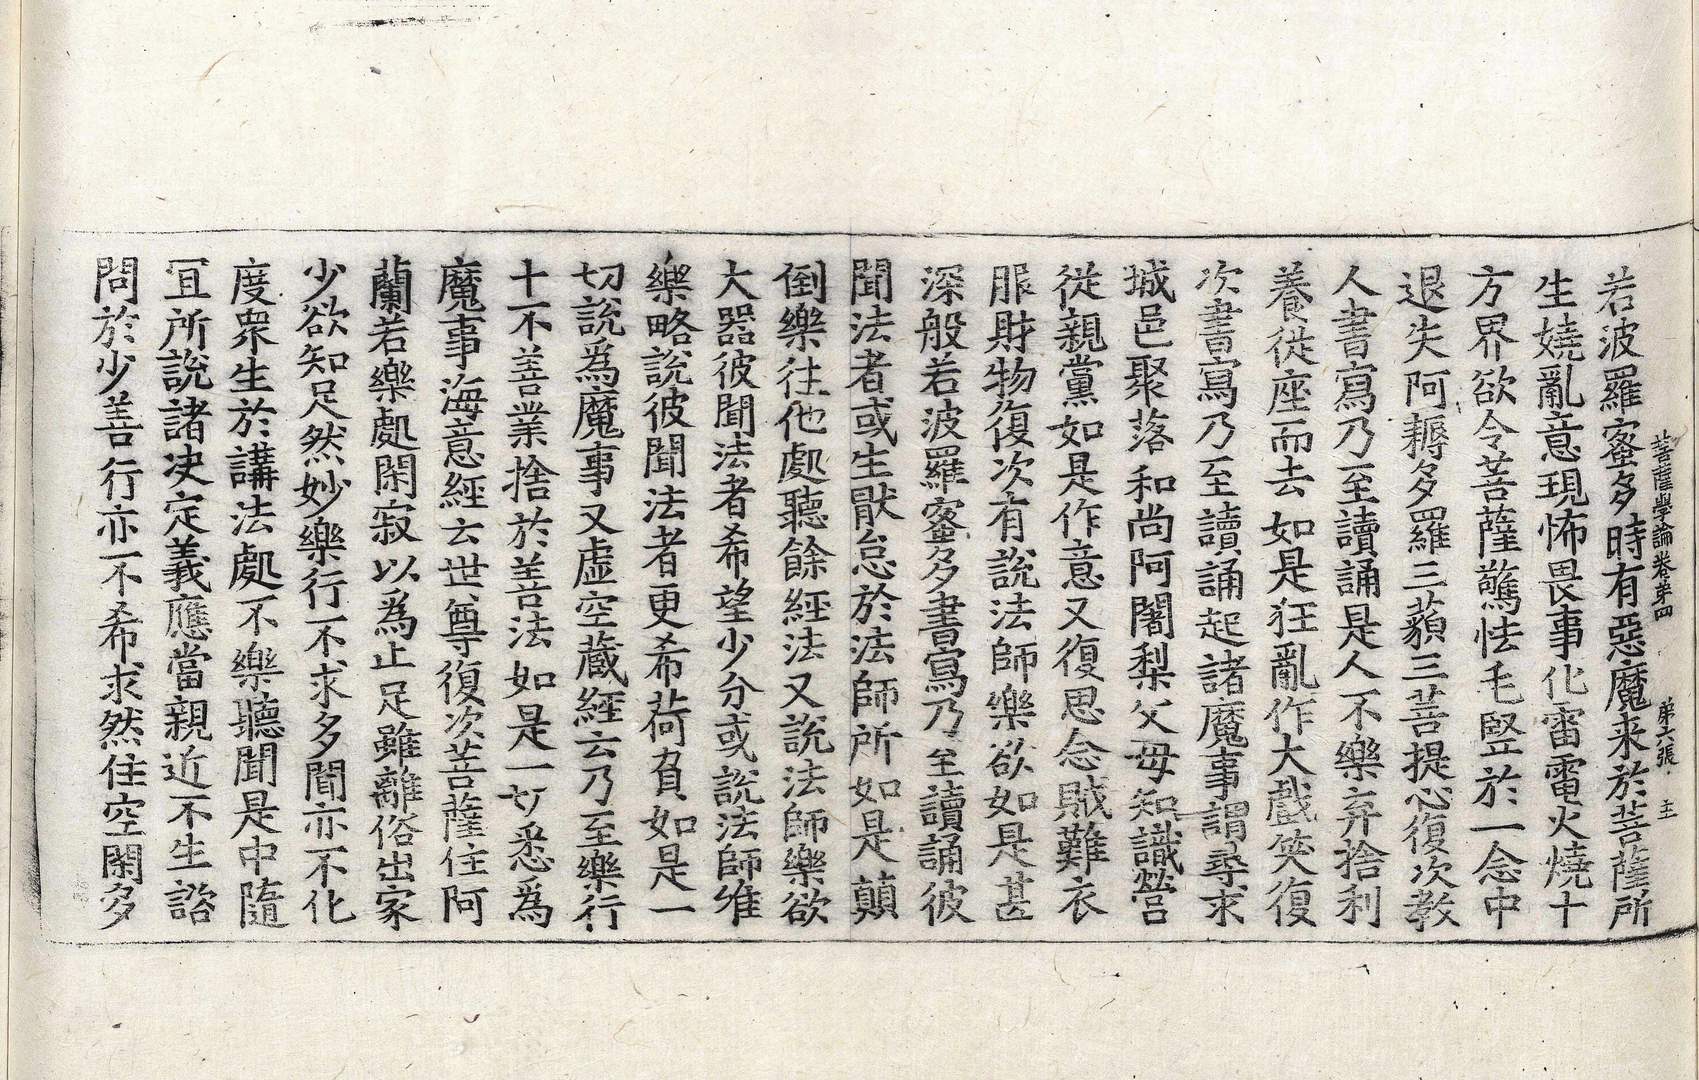 菩薩學論卷苐四　苐六張　主
若波羅蜜多時有惡魔来於菩薩所
生嬈亂意現怖畏事化雷電火燒十
方界欲令菩薩驚怯毛竪於一念中
退失阿耨多羅三藐三菩提心復次教
人書寫乃至讀誦是人不樂弃捨利
養從座而去如是狂亂作大戲笑復
次書寫乃至讀誦起諸魔事謂尋求
城邑聚落和尚阿闍梨父母知識營
從親黨如是作意又復思念賊難衣
服財物復次有說法師樂欲如是甚
深般若波羅蜜多書寫乃至讀誦彼
聞法者或生猒怠於法師所如是顛
倒樂往他處聽餘經法又說法師樂欲
大器彼聞法者希望少分或說法師唯
樂略說彼聞法者更希荷負如是一
切說為魔事又虛空藏經云乃至樂行
十不善業捨於善法如是一切悉為
魔事海意經云世尊復次菩薩住阿
蘭若樂處閑寂以為止足雖離俗出家
少欲知足然妙樂行不求多聞亦不化
度衆生於講法處不樂聽聞是中隨
冝所說諸決定義應當親近不生諮
問於少善行亦不希求然住空閑多